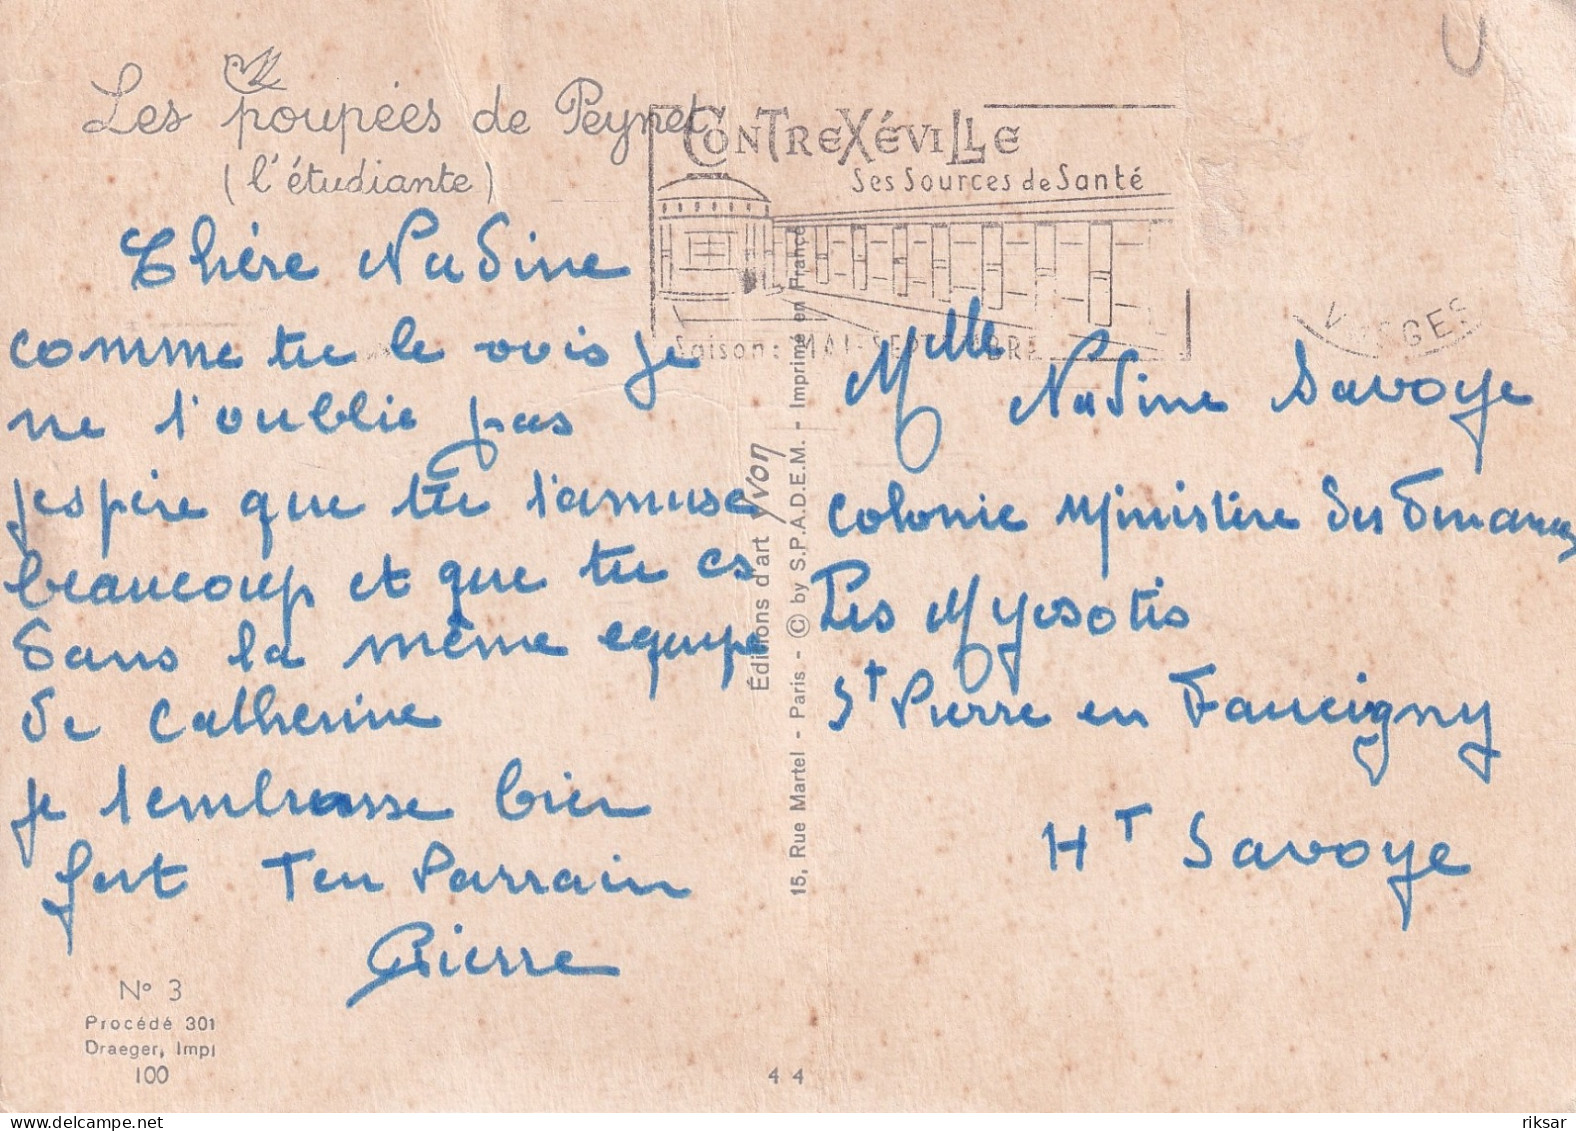 Les poupées de Peynet
(l'étudiante)
CONTREXÉVILLE
Ses Sources de Santé
Saison: MAI-SEPTEMBRE
VOSGES
U
Chère Nadine
comme tu le vois je
ne t'oublie pas
j'espère que tu t'amuse
beaucoup et que tu es
dans la même equipe
de Catherine
je t'embrasse bien
fort Ton Parrain
Pierre
N° 3
Procédé 301
Draeger, Impr
100
Éditions d'art Yvon
15, Rue Martel - Paris - © by S.P.A.D.E.M. - Imprimé en France
44
Melle Nadine Savoye
Colonie Ministère des Finances
Les Myosotis
St Pierre en Faucigny
Ht Savoye
www.delcampe.net
riksar